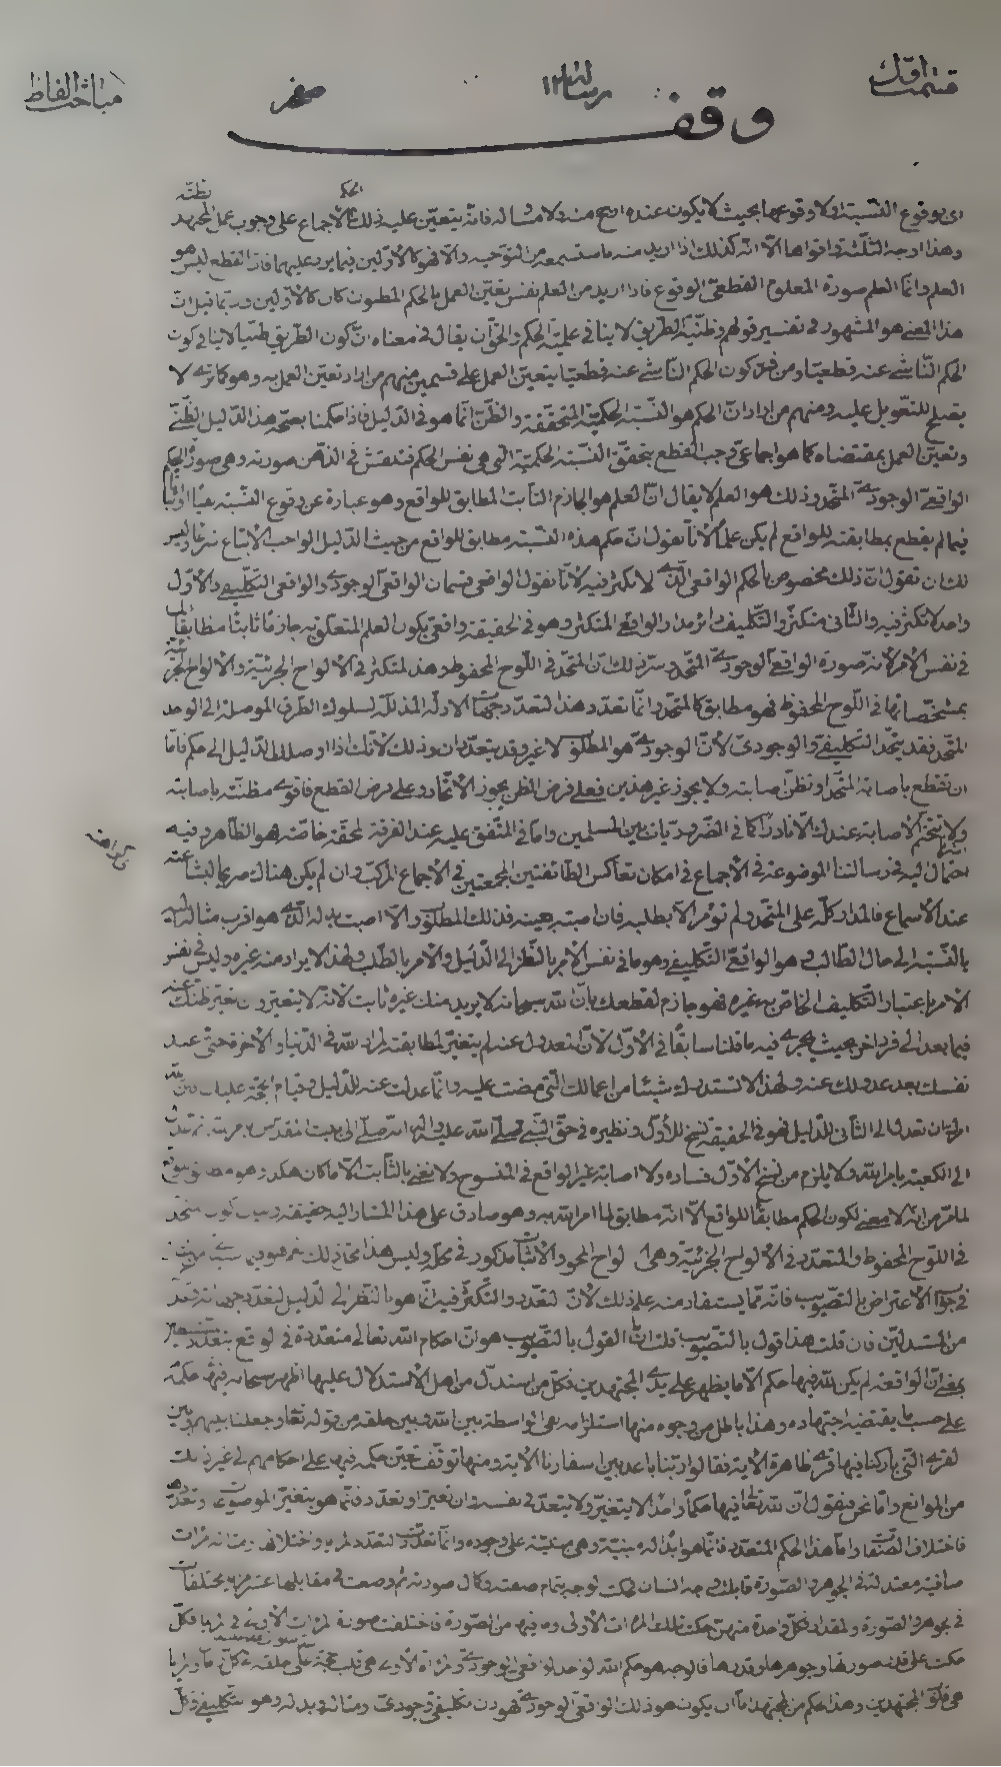 قسمت اول
رسالة ١٢
صغر
مباحث الفاظ
وقف
اى بوقوع النسبة او لا وقوعها بحيث لا يكون عنده ارجح منه ولا مساله فانه يتعين عليه ذلك للاجماع على وجوب عمل المجتهد
الحكم
بظنه
وهذا اوجه الثلثة واقواها الا انه كذلك اذا اريد منه ما ستسمعه من التوجيه والا فهو كالاولين فيما يرد عليهما فان القطع ليس هو
العلم وانما العلم صورة المعلوم القطعى الوقوع فاذا اريد من العلم نفس تعين العمل بالحكم المظنون كان كالاولين وربما قيل ان
هذا المعنى هو المشهور فى تفسير قولهم وظنية الطريق لا ينافى علمية الحكم والحق ان يقال فى معناه ان كون الطريق ظنيا لا ينافى كون
الحكم الناشى عنه قطعيا ومن فسر كون الحكم الناشى عنه قطعيا بتعين العمل على قسمين منهم من اراد تعين العمل به وهو كما ترى لا
يصلح للتعويل عليه ومنهم من اراد ان الحكم هو النسبة الحكمية المتحققة والظن انما هو فى الدليل فاذا حكمنا بصحة هذا الدليل الظنى
وتعين العمل بمقتضاه كما هو اجماعى وجب القطع بتحقق النسبة الحكمية التى هى نفس الحكم فتنقش فى الذهن صورته وهى صورة الحكم
الواقعى الوجودى المتحد وذلك هو العلم لا يقال ان العلم هو الجازم الثابت المطابق للواقع وهو عبارة عن وقوع النسبة نفيا او اثباتا
فيما لم يقطع بمطابقته للواقع لم يكن علما لانا نقول ان حكم هذه النسبة مطابق للواقع من حيث الدليل الواجب الاتباع شرعا وليس
لك ان تقول ان ذلك مخصوص بالحكم الواقعى الذى لا تكثر فيه لانا نقول الواقعى قسمان الواقعى الوجودى والواقعى التكليفى والاول
واحد لا تكثر فيه والثانى متكثر والتكليف دائر مدار الواقعى المتكثر وهو فى الحقيقة واقعى يكون العلم المتعلق به جازما ثابتا مطابقا لما
فى نفس الامر لانه صورة الواقعى الوجودى المتحد وسر ذلك ان المتحد فى اللوح المحفوظ وهذا المتكثر فى الالواح الجزئية والالواح الجزئية
بمشخصاتها فى اللوح المحفوظ فهو مطابق للمتحد وانما تعدد هذا لتعدد جهات الادلة المذللة لسلوك الطرق الموصلة الى الواحد
المتحد فقد يتحد التكليفى والوجودى لان الوجودى هو المطلوب لا غير وقد يتعددان وذلك لانك اذا اوصلك الدليل الى حكم فاما
ان تقطع باصابة المتحد او تظن اصابته ولا يجوز غير هذين فعلى فرض الظن يجوز الاتحاد وعلى فرض القطع فاقوى مظنته باصابته
ولا يتحتم الاصابة عندك الا نادرا كما فى الضروريات بين المسلمين واما فى المتفق عليه عند الفرقة المحقة خاصة هو الظاهر وفيه
احتمال
فى رسالتنا الموضوعة فى الاجماع فى امكان تعاكس الطائفتين المجمعتين فى الاجماع المركب وان لم يكن هناك صريحا
عند الاسماع فالمدار كله على المتحد ولم نؤمر الا بطلبه فان اصبته بعينه فذلك المطلوب والا اصبت بدله الذى هو اقرب مثاله اليه
بالنسبة الى حال الطالب وهو الواقعى التكليفى وهو ما فى نفس الامر بالنظر الى الدليل والامر بالطلب ولهذا لا يراد منه غيره وليس فى نفس
الامر باعتبار التكليف الخاص به غيره فهو جازم لقطعك بان الله سبحانه لا يريد منك غيره ثابت لانه لا يتغير وان تغير ظنك عنه
فيما بعد الى فرد اخر بحيث يجرى فيه ما قلنا سابقا فى الاول لان المعدول عنه لم يتغير لمطابقته لمراد الله فى الدنيا والاخرة حتى عند
نفسك بعد عدولك عنه ولهذا لا تستدرك شيئا من اعمالك التى مضت عليه وانما عدلت عنه للدليل وقيام الحجة عليك من الله
ان تعدل الى الثانى للدليل فهو فى الحقيقة نسخ للاول ونظيره فى حق النبى صلى الله عليه واله انه صلى الى بيت المقدس
الى الكعبة بامر الله ولا يلزم من نسخ الاول فساده ولا اصابة غير الواقع فى المنسوخ ولا نعنى بالثابت الا ما كان هكذا وهو مطابق للواقع
لما قرر من انه لا معنى لكون الحكم مطابقا للواقع الا انه مطابق لما امر الله به وهو صادق على هذا المشار اليه حقيقة
فى اللوح المحفوظ والمتعدد فى الالواح الجزئية وهى الواح المحو والاثبات مذكور فى محله وليس هذا
فى جواب الاعتراض بالتصويب فانه مما يستفاد منه على ذلك لان التعدد والتكثر فيه انما هو بالنظر الى الدليل لتعدد جهاته
من المستدلين فان قلت هذا قول بالتصويب قلت ان القول بالتصويب هو ان احكام الله تعالى متعددة فى الواقع بتعدد
بمعنى ان الواقعة لم يكن لله فيها حكم الا ما يظهر على يدى المجتهدين فكل من استدل من اهل الاستدلال عليها اظهر سبحانه فيها حكمه
على حسب ما يقتضيه اجتهاده وهذا باطل من وجوه منها استلزامه نفى الواسطة بين الله وبين خلقه من قوله تعالى وجعلنا بينهم وبين
القرى التى باركنا فيها قرى ظاهرة الاية فقالوا ربنا باعد بين اسفارنا الاية ومنها توقف تعين حكمه فيها على احكامهم الى غير ذلك
من الموانع واما نحن فنقول ان لله تعالى فيها حكما واحدا لا يتغير ولا يتعدد فى نفسه وان تغير او تعدد فانما هو بتغير الموضوع وتعدده
فاختلاف الصفات واما هذا الحكم المتعدد فانما هو ابداله مبنية وهى مبنية على وجوده وانما تعددت لتعدد
صافية معتدلة فى الجوهر والصورة قابلت وجه انسان فحكت لوجه بتمام صفته وكمال صورته ثم وضعت فى مقابلها عشر
فى الجوهر والصورة والمقدار فكل واحدة منهن حكت تلك المرات الاولى وما فيها من الصورة فاختلفت صورة المرات الاولى فى المرايا فكل
حكت على قدر صورها وجوهرها وقدرها فالوجه هو حكم الله الواحد الواقعى الوجودى والمراة الاولى هى قلب حجته على خلقه
هى قلوب المجتهدين وهذا حكم من المجتهد اما ان يكون هو ذلك الواقعى الوجودى فهو اذن تكليفى وجودى ومثاله وبدله وهو التكليفى وكل